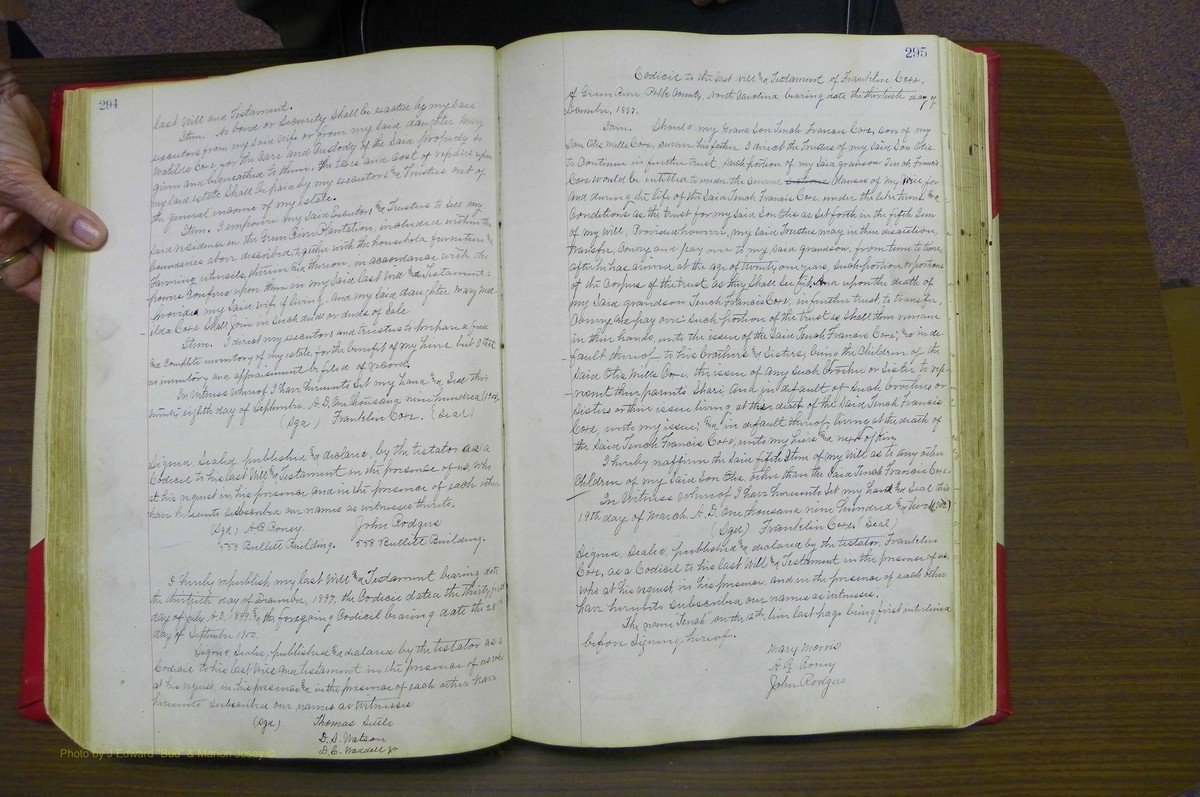 294
last Will and Testament.
Item. No bond or Security Shall be exacted by my Said
executors from my Said Wife or from my Said daughter Mary
Matilda Coxe for the Care and Custody of the Said property so
given and bequeathed to them. the taxes and Cost of repairs upon
my Said estate Shall be paid by my executors & Trustees out of
the general income of my estate.
Item. I empower my Said Executors & Trustees to Sell my
Said residence on the Green River Plantation, included within the
boundaries above described together with the household furniture &
Farming utensils, therein & thereon, in accordance with the
powers Conferred upon them in my Said last Will & Testament;
provided my Said wife if living, and my Said daughter Mary Mat-
ilda Coxe Shall join in Such deed or deeds of Sale
Item. I direct my executors and trustees to prepare a full
& complete inventory of my estate for the benefit of my heirs but
no inventory and appraisement be filed of record.
In Witness whereof I have hereunto Set my hand & Seal this
twenty eighth day of September, A.D. One thousand nine hundred (1900.
(Sgd) Franklin Coxe. (Seal)
Signed, Sealed, published & declared, by the testator as a
Codicil to his last Will & Testament in the presence of us, who
at his request in his presence and in the presence of each other
have hereunto Subscribed our names as witnesses thereto.
(Sgd) A.G. Coney. John Rodgers
558 Bullitt Building. 558 Bullitt Building.
I hereby republish my last Will & Testament bearing date
the thirtieth day of December, 1897, the Codicil dated the thirty first
day of July, A.D. 1899 & the foregoing Codicil bearing date the 28"
day of September 1900.
Signed, Sealed, published & declared by the testator as a
Codicil to his last Will and Testament in the presence of us who
at his request, in his presence & in the presence of each other have
hereunto Subscribed our names as witnesses
(Sgd) Thomas Settle
D. S. Watson
D. C. Waddell Jr
295
Codicil to the last Will & Testament of Franklin Coxe,
of Green River Polk County, North Carolina bearing date the thirtieth day of
December, 1897.
Item. Should my Grand Son Tench Francis Coxe, son of my
Son Otis Mills Coxe, survive his father I direct the Trustees of my Said Son Otis.
to Continue in further trust, Such portion of my Said grandson Tench Francis
Coxe would be entitled to under the Several Clauses of my Will, for
and during the life of the Said Tench Francis Coxe, under the like terms &
Conditions as the trust for my Said Son Otis as Set forth in the fifth Item
of my Will, Provided however, my Said Trustees may in their discretion,
transfer, Convey and pay over to my Said grandson, from time to time,
after he has arrived at the age of twenty one years, Such portion or portions
of the Corpus of the trust as they Shall See fit. And upon the death of
my Said grandson Tench Francis Coxe, in further trust, to transfer,
Convey & pay over Such portion of the trust as Shall then remain
in their hands, unto the issue of the Said Tench Francis Coxe; & in de-
fault thereof to his brothers & Sisters, being the Children of the
Said Otis Mills Coxe, the issue of any Such Brother or Sister to rep-
resent their parents Share; And in default of Such brothers or
Sisters or their issue living at the death of the Said Tench Francis
Coxe, unto my issue; & in default thereof living at the death of
the Said Tench Francis Coxe, unto my heirs & next of kin
I hereby reaffirm the Said fifth Item of my Will as to any other
Children of my Said Son Otis, other than the Said Tench Francis Coxe.
In Witness whereof I have hereunto Set my hand & Seal this
19th day of March A.D. One thousand nine hundred & two (1902)
(Sgd) Franklin Coxe. (Seal)
Signed, Sealed, published & declared by the testator, Franklin
Coxe, as a Codicil to his last Will & Testament in the presence of us,
who at his request, in his presence and in the presence of each other
have hereunto Subscribed our names as witnesses.
The name "Tench" on the 12th, line last page being first interlined
before Signing hereof.
Mary Morris
A. G. Coney
John Rodgers
Photo by J Edward "Bud" & Marion Josey ©